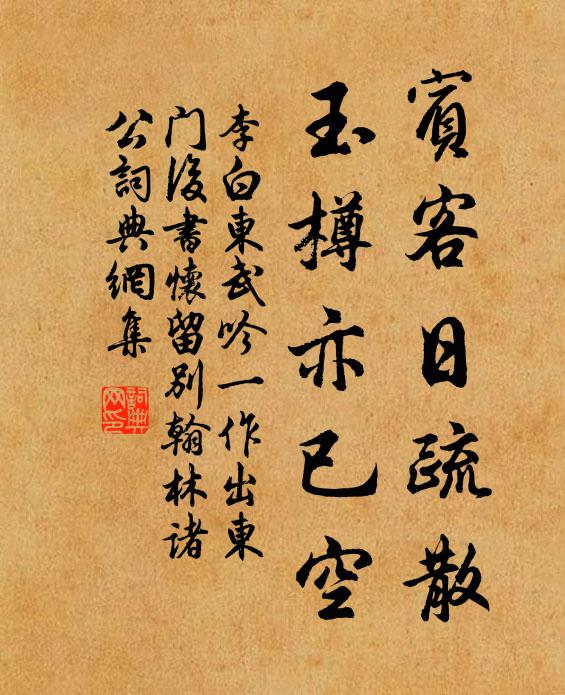 賓客日疏散
玉樽亦已空
李白東武吟一作出東
门後書懷留别翰林諸
公詞典網集
詞典
网印